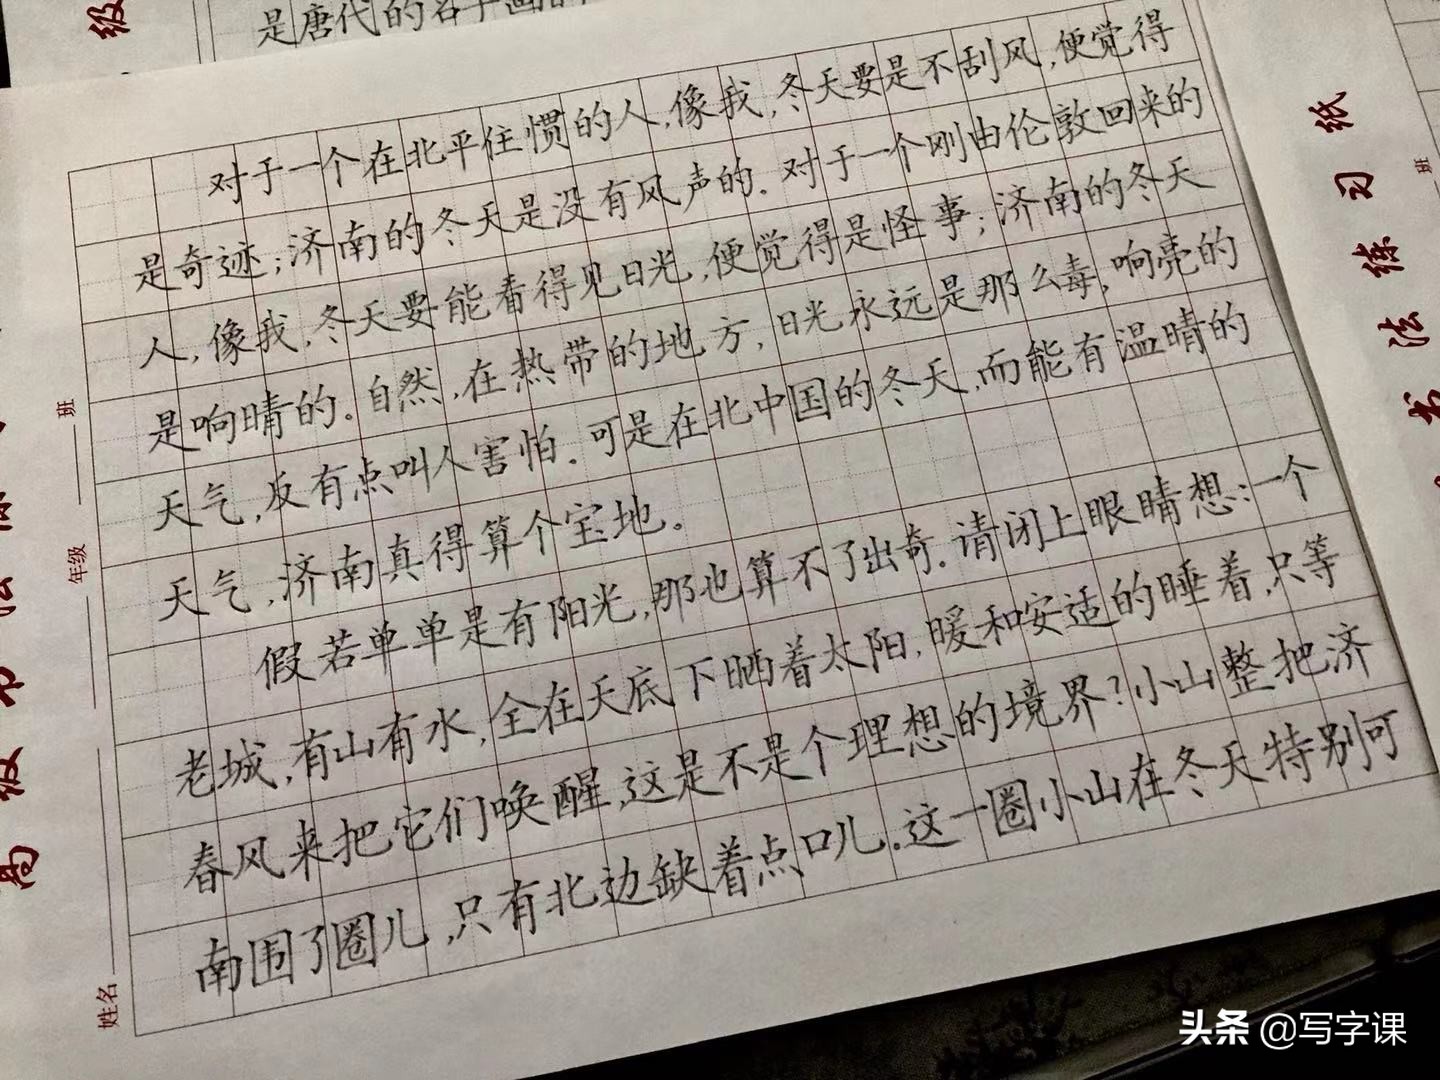 是唐代的
对于一个在北平住惯的人,像我,冬天要是不刮风,便觉得
是奇迹;济南的冬天是没有风声的.对于一个刚由伦敦回来的
人,像我,冬天要能看得见日光,便觉得是怪事;济南的冬天
是响晴的.自然,在热带的地方,日光永远是那么毒,响亮的
天气,反有点叫人害怕.可是在北中国的冬天,而能有温晴的
天气,济南真得算个宝地。
假若单单是有阳光,那也算不了出奇.请闭上眼睛想:一个
老城,有山有水,全在天底下晒着太阳,暖和安适的睡着,只等
春风来把它们唤醒,这是不是个理想的境界?小山整把济
南围了圈儿,只有北边缺着点口儿.这一圈小山在冬天特别可
班
年级
姓名
高级书法
级
班
书法练习纸
头条 @写字课